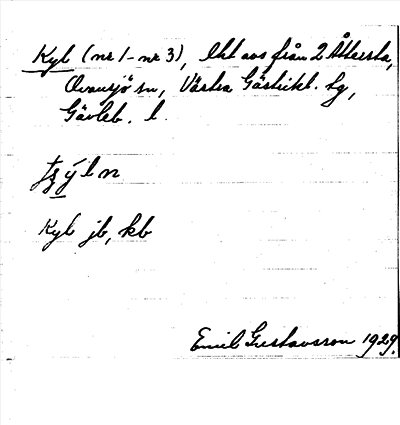 Kyl (nr 1 - nr 3), lht avs från 2 Åttersta,
Ovansjö sn, Västra Gästrikl. tg,
Gävleb. l.
Kyl jb, kb
Emil Gustavsson 1929.